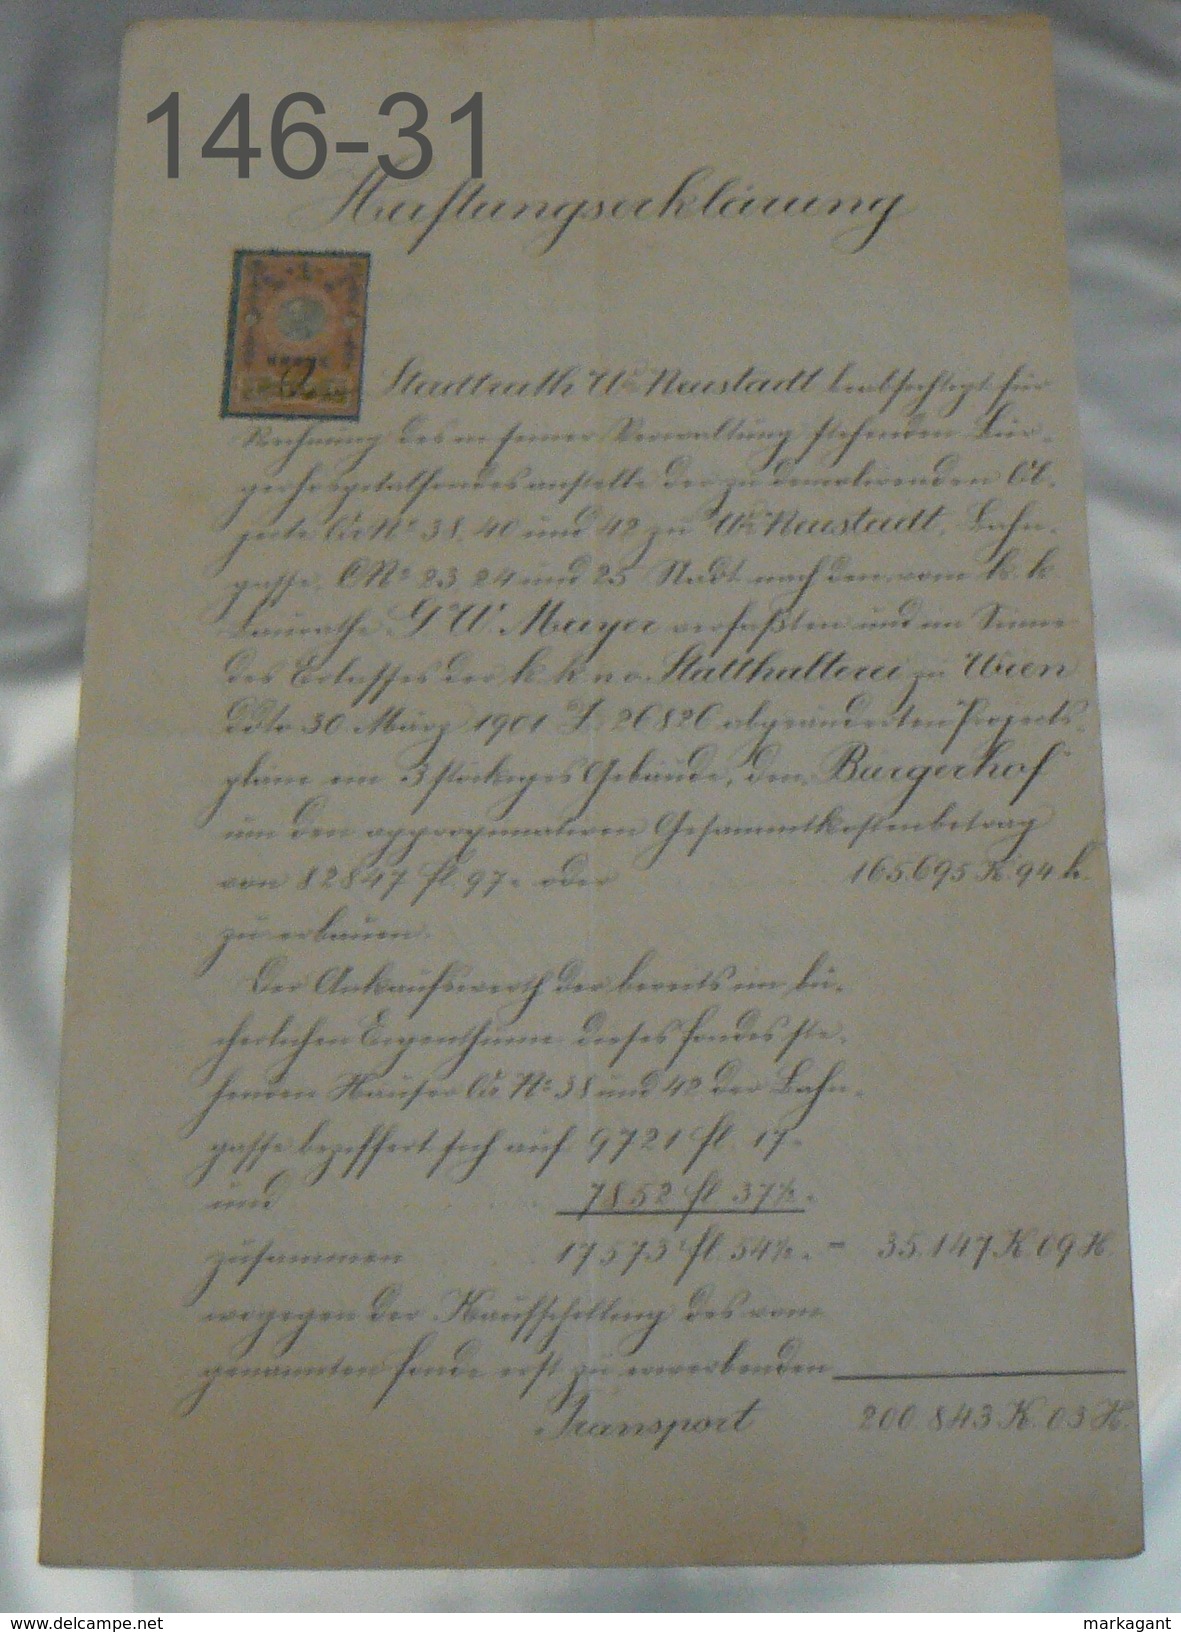 146-31
Haftungserklärung
Stadtrath Wr Neustadt beabsichtigt für
Rechnung des in seiner Verwaltung stehenden Bür-
gerhospitalfondes anstelle der zu demolirenden Ob-
jecte Cu No 38, 40 und 42 zu Wr Neustadt, Bahn-
gasse, C No 23 24 und 25 Stadt nach den vom k. k.
Baurathe G W. Mayer verfaßten und im Sinne
des Erlasses der k k n o. Statthalterei in Wien
ddto 30 März 1901 Z. 26826 abgeänderten Projects-
pläne ein 3 stöckiges Gebäude, den „Bürgerhof“
um den approximativen Gesammtkostenbetrag
von 82847 fl. 97 - oder 165.695 K. 94 h.
zu erbauen.
Der Ankaufswerth der bereits im bü-
cherlichen Eigenthume dieses Fondes ste-
henden Häuser Cu No 38 und 42 der Bahn-
gasse beziffert sich auf 9721 fl. 17 -
und 7852 fl. 37½ -
zusammen 17573 fl. 54½ - = 35.147 K. 09 H.
wogegen der Kaufschilling des vom
genannten Fonde erst zu erwerbenden
Transport 200.843 K. 03 H.
www.delcampe.net
markagant